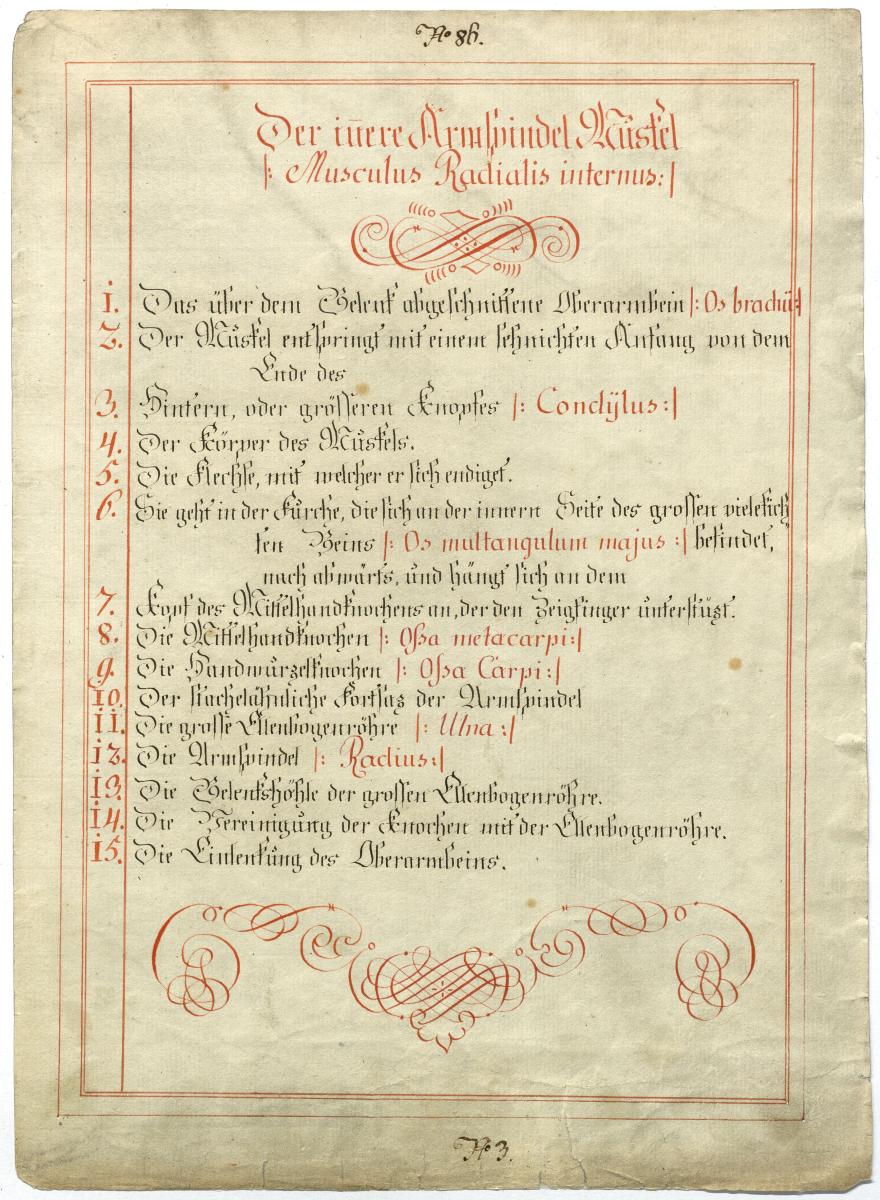 No 86.
Der iñere Armspindel Muskel
|: Musculus Radialis internus: |
1. Das über dem Gelenk abgeschnittene Oberarmbein |: Os brachii: |
2. Der Muskel entspringt mit einem sehnichten Anfang von dem
Ende des
3. Hintern, oder grösseren Knopfes |: Condÿlus: |
4. Der Körper des Muskels.
5. Die Flechse, mit welcher er sich endiget.
6. Sie geht in der Furche, die sich an der innern Seite des grossen vielekich
ten Beins |: Os multangulum majus : | befindet,
nach abwärts, und hängt sich an dem
7. Kopf des Mittelhandknochens an, der den Zeigfinger unterstüzt.
8. Die Mittelhandknochen |: Oßa metacarpi: |
9. Die Handwurzelknochen |: Oßa Carpi: |
10. Der stachelähnliche Fortsaz der Armspindel
11. Die grosse Ellenbogenröhre |: Ulna : |
12. Die Armspindel |: Radius: |
13. Die Gelenkshöhle der grossen Ellenbogenröhre.
14. Die Vereinigung der Knochen mit der Ellenbogenröhre.
15. Die Einlenkung des Oberarmbeins.
No 3.